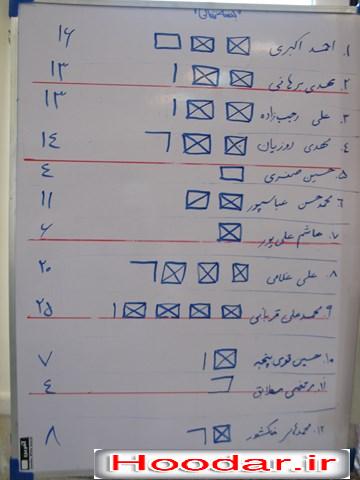 ۱. احمد اکبری ۱۶
۲. مهدی برهانی ۱۳
۳. علی رجب‌زاده ۱۳
۴. مهدی روزیان ۱۴
۵. حسین صفری ۴
۶. محمدحسن عباسپور ۱۱
۷. هاشم علی‌پور ۶
۸. علی غلامی ۲۰
۹. محمدعلی قربانی ۲۵
۱۰. حسین قوی پنجه ۷
۱۱. مرتضی مطابق ۴
۱۲. ۸
Hoodar.ir